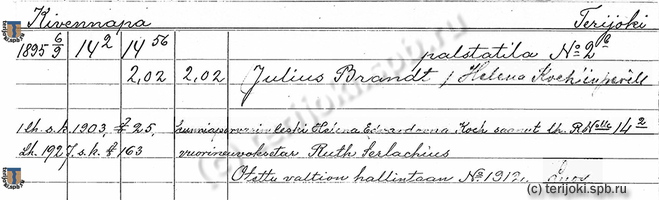 Kivennapa Terijoki
1895 6/9 14² 14⁵⁶ palstatila No 2⁶
2,02 2,02 Julius Brandt / Helena Koch'in perill.
1 lh. s. k. 1903, § 25, leski Helena Edvardovna Koch saanut lh. R No 14²
Lh. 1927, s. k. § 163 vuorineuvoksetar Ruth Serlachius
Otettu valtion hallintaan No
terijoki.spb.ru
(c) terijoki.spb.ru